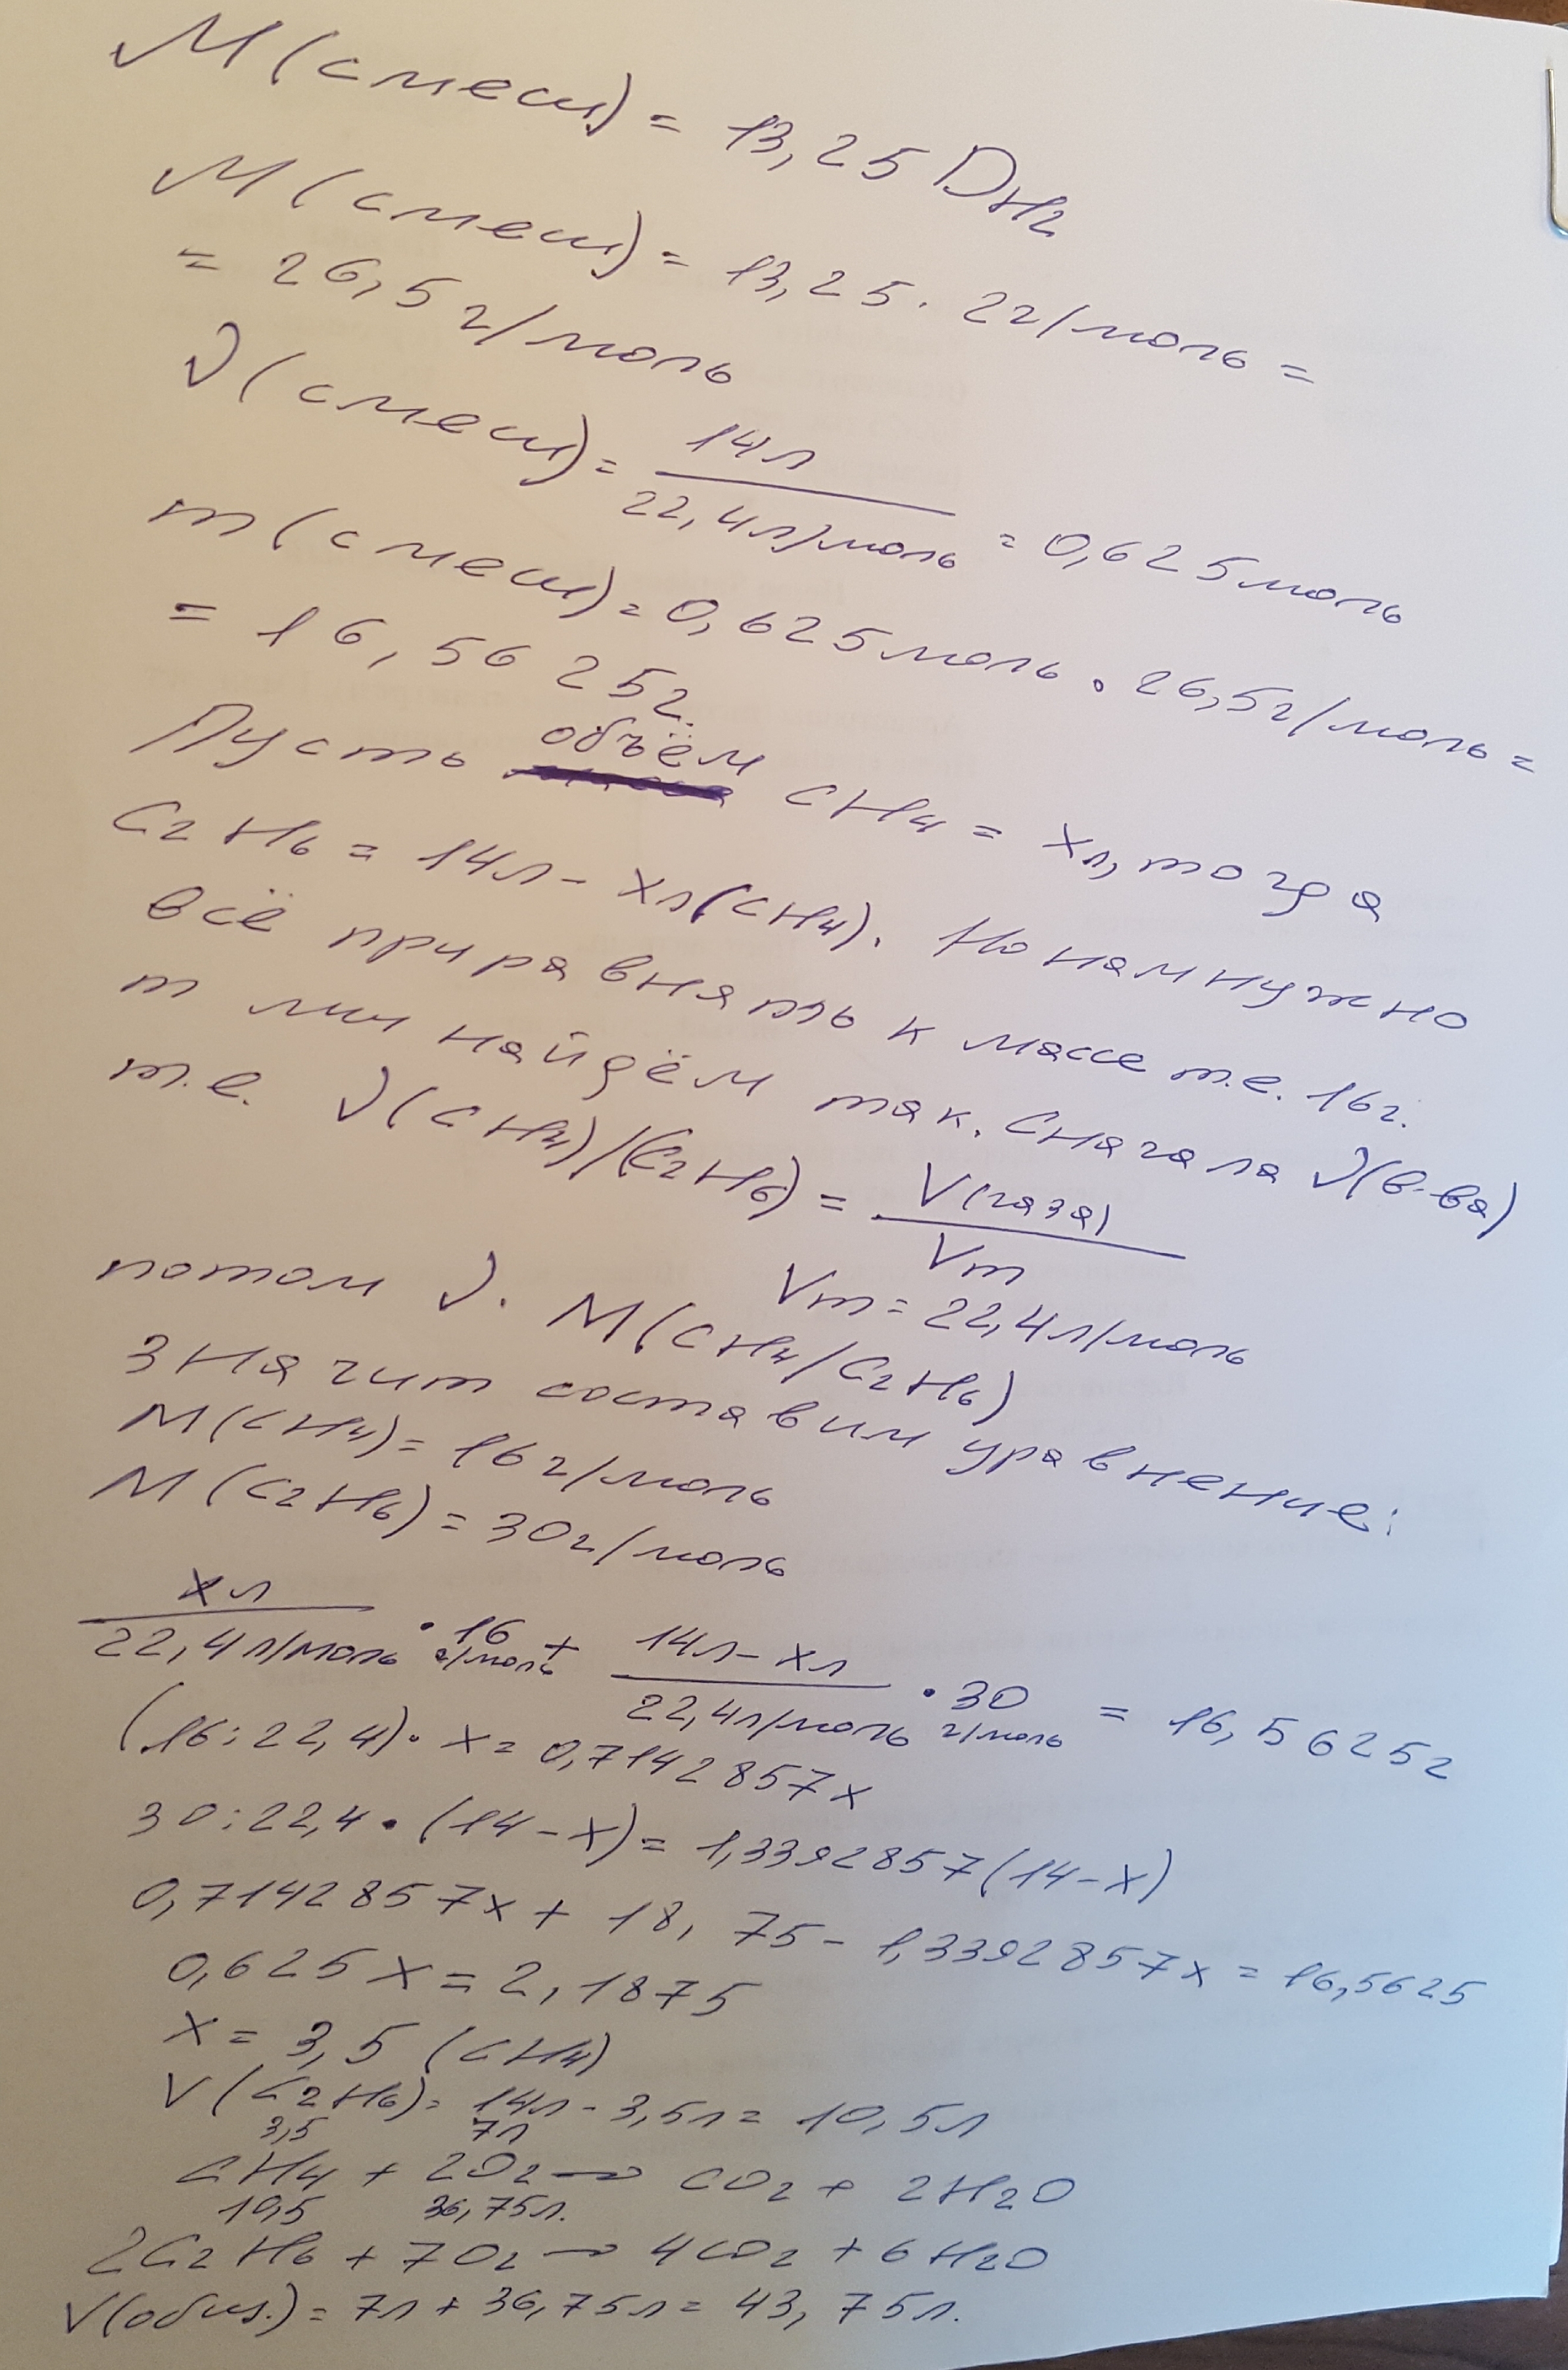 M(смеш) = 13,25 D H2
M(смеш) = 13,25 · 2г/моль =
= 26,5 г/моль
ν(смеш) = 14л / 22,4л/моль = 0,625моль
m(смеш) = 0,625моль · 26,5г/моль =
= 16,5625г.
Пусть объём CH4 = xл, тогда
C2H6 = 14л - xл(CH4). Но нам нужно
всё приравнять к массе т.е. 16г.
m мы найдём так. Сначала ν(в-ва)
т.е. ν(CH4)/(C2H6) = V(газа) / Vm
Vm = 22,4л/моль
потом ν · M(CH4/C2H6)
Значит составим уравнение:
M(CH4) = 16г/моль
M(C2H6) = 30г/моль
xл / 22,4л/моль · 16 г/моль + 14л - xл / 22,4л/моль · 30 г/моль = 16,5625г
(16:22,4) · x = 0,7142857x
30:22,4 · (14-x) = 1,3392857(14-x)
0,7142857x + 18,75 - 1,3392857x = 16,5625
0,625x = 2,1875
x = 3,5 (CH4)
V(C2H6) = 14л - 3,5л = 10,5л
3,5 7л
CH4 + 2O2 → CO2 + 2H2O
10,5 36,75л.
2C2H6 + 7O2 → 4CO2 + 6H2O
V(общ.) = 7л + 36,75л = 43,75л.